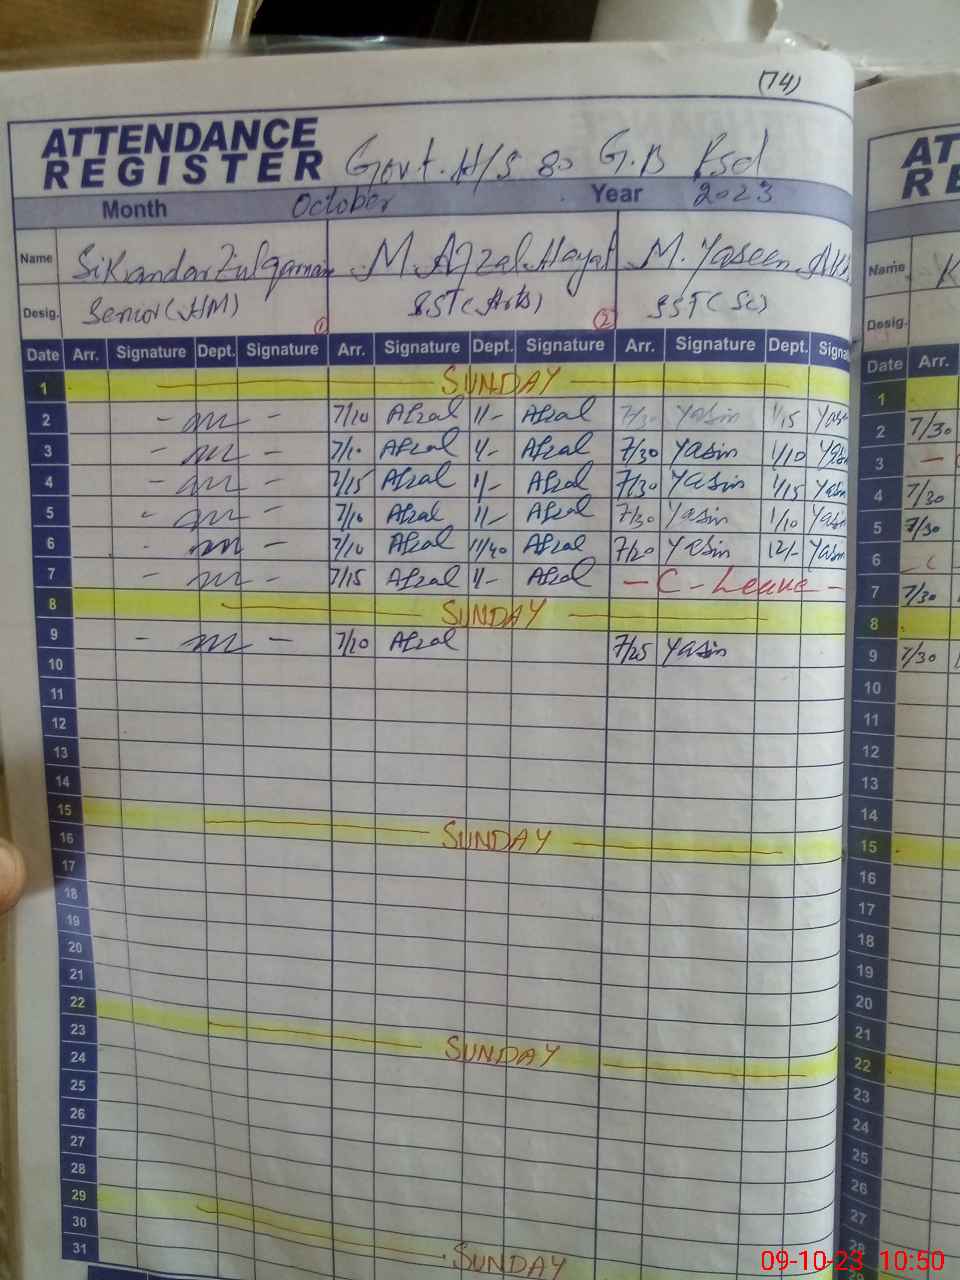 (74)
ATTENDANCE
REGISTER Govt. H/S 80 G.B Fsd
Month October Year 2023
Name Sikandar Zulqarnain M. Afzal Hayat M. Yaseen
Desig. Senior (HM) SST (Arts) SST (Sc)
① ②
Date Arr. Signature Dept. Signature Arr. Signature Dept. Signature Arr. Signature Dept. Signa
1 SUNDAY
2 - - 7/10 Afzal 1/- Afzal 7/30 Yasin 1/15 Yas
3 - - 7/10 Afzal 1/- Afzal 7/30 Yasin 1/10 Yas
4 - - 7/15 Afzal 1/- Afzal 7/30 Yasin 1/15 Yasin
5 - - 7/10 Afzal 1/- Afzal 7/30 Yasin 1/10 Yasin
6 - - 7/10 Afzal 11/40 Afzal 7/20 Yasin 12/- Yasin
7 - - 7/15 Afzal 1/- Afzal - C - Leave -
8 SUNDAY
9 - - 7/10 Afzal 7/25 Yasin
10
11
12
13
14
15 SUNDAY
16
17
18
19
20
21
22 SUNDAY
23
24
25
26
27
28
29 SUNDAY
30
31
AT
RE
Name K
Desig.
Date Arr.
1
2 7/30
3 -
4 7/30
5 7/30
6 - C
7 7/30
8
9 7/30
10
11
12
13
14
15
16
17
18
19
20
21
22
23
24
25
26
27
28
09-10-23 10:50